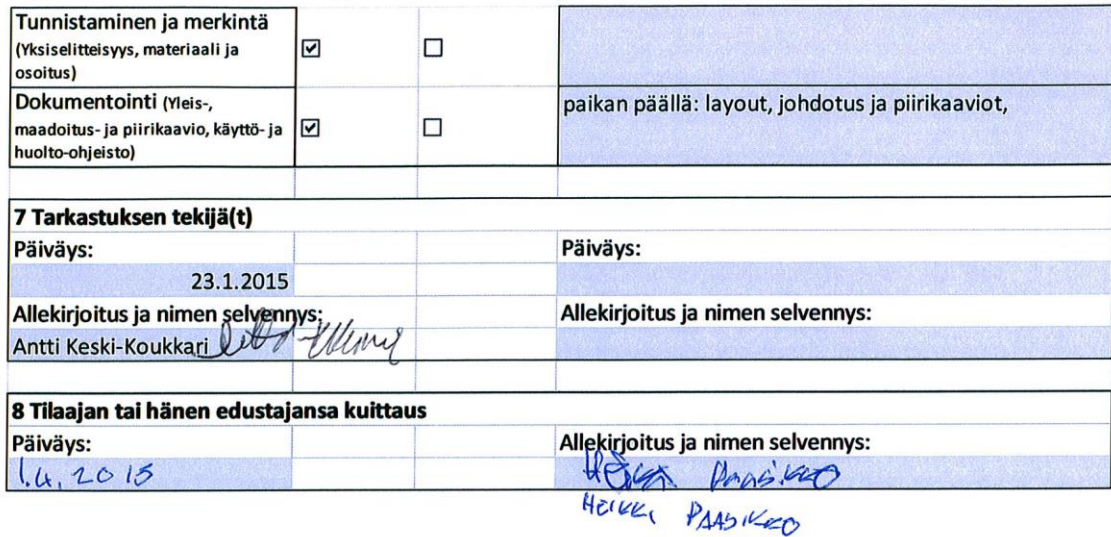 Tunnistaminen ja merkintä
(Yksiselitteisyys, materiaali ja
osoitus)
Dokumentointi (Yleis-,
maadoitus- ja piirikaavio, käyttö- ja
huolto-ohjeisto)
paikan päällä: layout, johdotus ja piirikaaviot,
7 Tarkastuksen tekijä(t)
Päiväys:
Päiväys:
23.1.2015
Allekirjoitus ja nimen selvennys:
Allekirjoitus ja nimen selvennys:
Antti Keski-Koukkari
8 Tilaajan tai hänen edustajansa kuittaus
Päiväys:
Allekirjoitus ja nimen selvennys:
1.4.2015
Heikki Paasikko
HEIKKI PAASIKKO